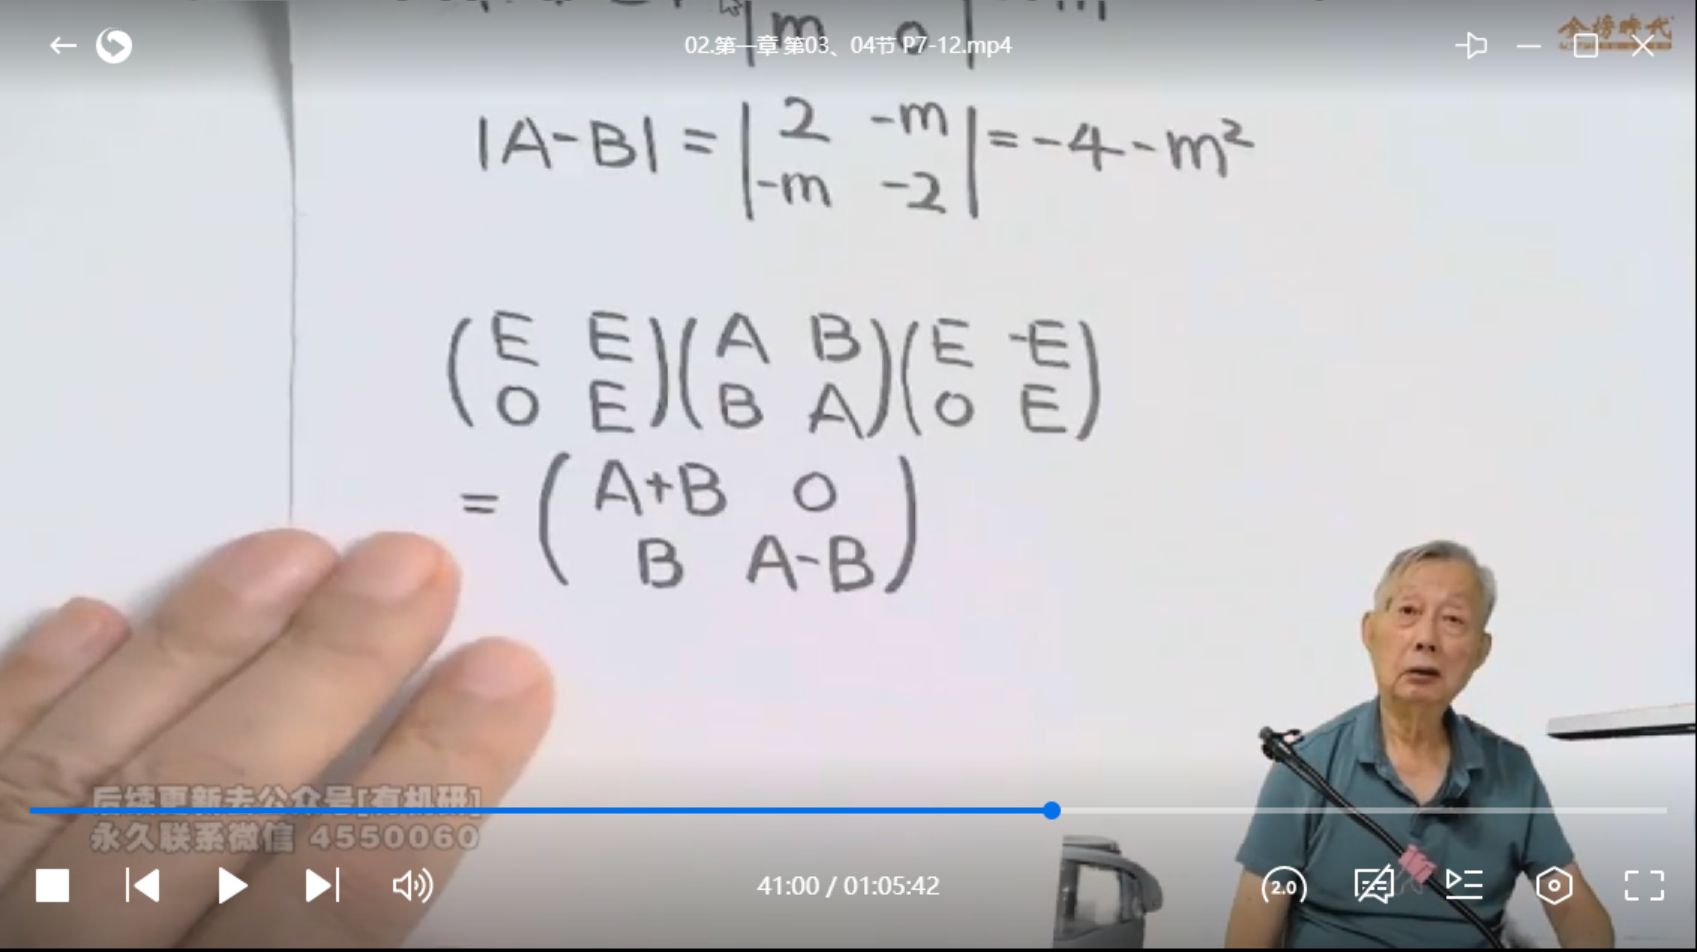 02.第一章 第03、04节 P7-12.mp4
金榜時代
m 0
|A-B| = | 2 -m | = -4-m²
| -m -2 |
( E E ) ( A B ) ( E -E )
( O E ) ( B A ) ( O E )
= ( A+B O )
( B A-B )
后续更新去公众号[有机研]
永久联系微信 4550060
41:00 / 01:05:42
2.0